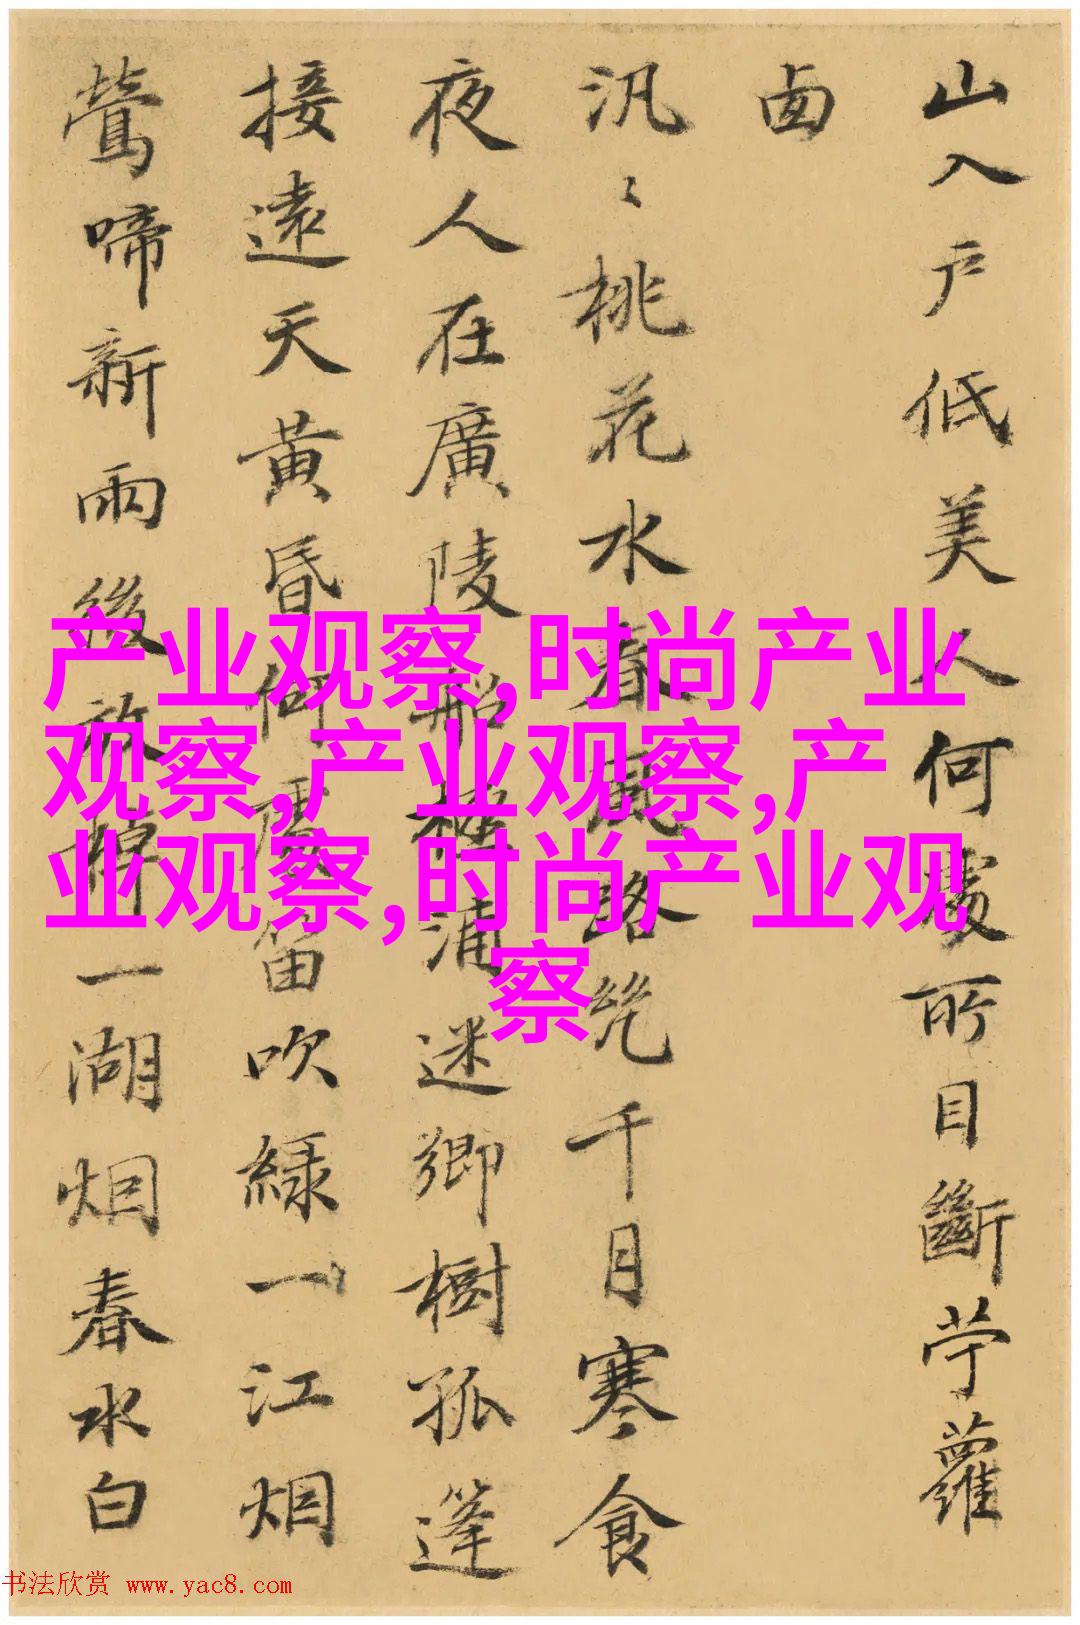 山入户低美人何處所目斷苧蘿
汎〻桃花水春風路千月寒食
夜人在廣陵船極浦迷鄉樹孤篷
接遠天黄昏笛吹綠一江烟
鶯啼新雨後放棹一湖烟春水白
产业观察,时尚产业
观察,产业观察,产
业观察,时尚产业观
察
书法欣赏 www.yac8.com